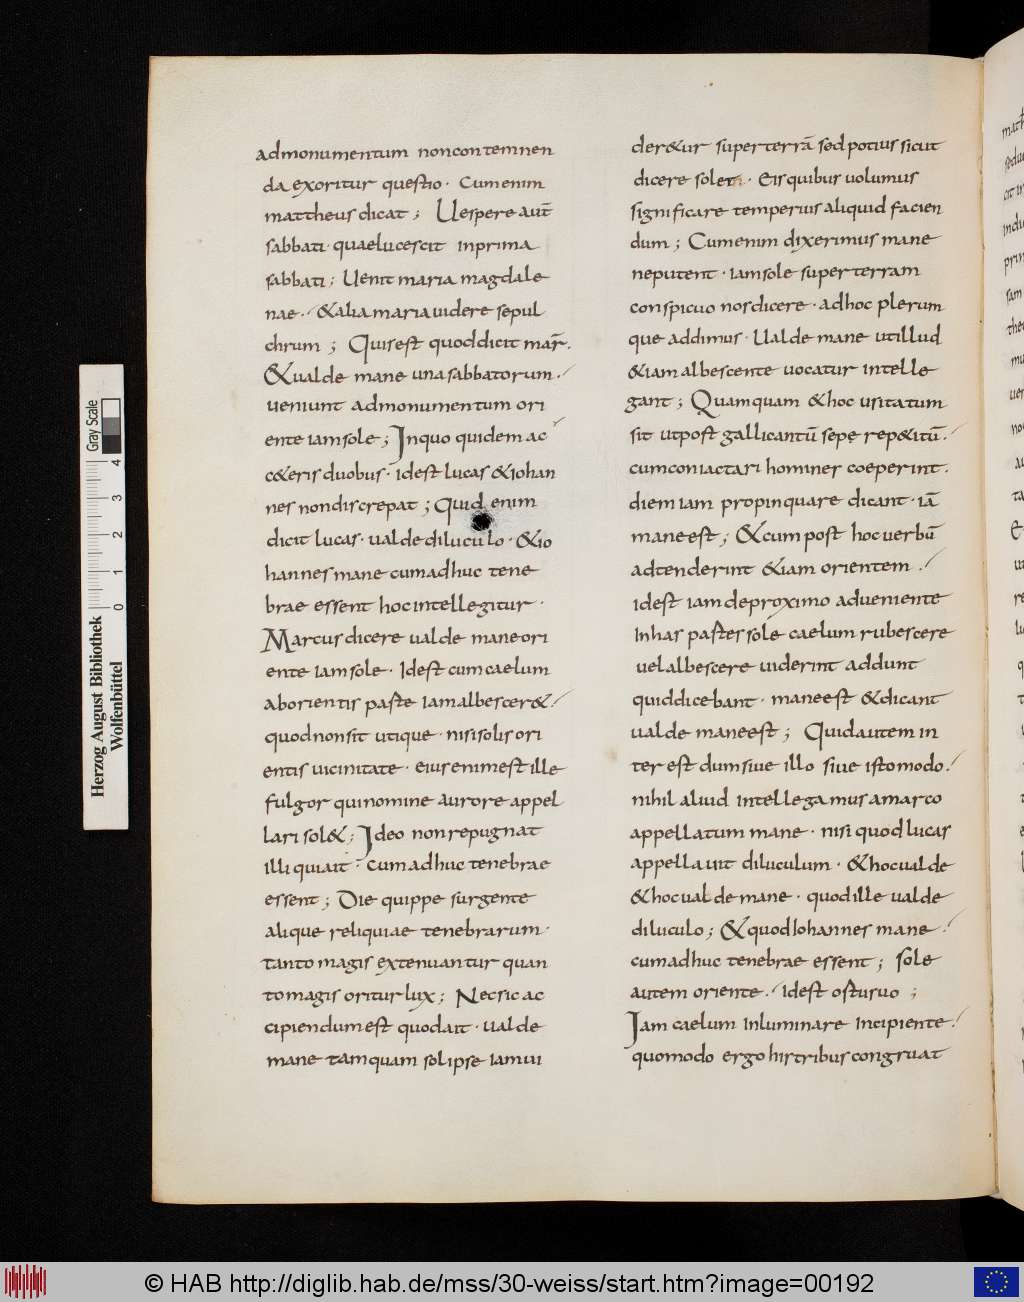 admonumentum noncontemnen
da exoritur questio · Cumenim
mattheus dicat ; Uespere aut̄
sabbati · quaelucescit inprima
sabbati ; Uenit maria magdale
nae · & alia maria uidere sepul
chrum ; Quisest quoddicit mar̄ ·
& ualde mane una sabbatorum ·
ueniunt admonumentum ori
ente iamsole ; Inquo quidem ac
c&eris duobus · idest lucas & iohan
nes nondiscrepat ; Quid enim
dicit lucas · ualde diluculo · & io
hannes mane cumadhuc tene
brae essent hocintellegitur ·
Marcus dicere ualde mane ori
ente iamsole · Idest cumcaelum
aborientis paste iamalbescer& ·
quodnonsit utique · nisisolis ori
entis uicinitate · eius enimest ille
fulgor quinomine aurore appel
lari sol& ; Ideo nonrepugnat
illi quiait · cumadhuc tenebrae
essent ; Die quippe surgente
alique reliquiae tenebrarum ·
tanto magis extenuantur quan
tomagis oritur lux ; Necsic ac
cipiendumest quodait · ualde
mane tamquam sol ipse iamui
der&ur superterrā sedpotius sicut
dicere sol& · Eis quibus uolumus
significare temperius aliquid facien
dum ; Cumenim dixerimus mane
neputent · iamsole superterram
conspicuo nosdicere · adhoc plerum
que addimus · Ualde mane utillud
& iam albescente uocatur intelle
gant ; Quamquam & hoc usitatum
sit utpost gallicantū sepe rep&itū ·
cumconiactari homines coeperint ·
diem iam propinquare dicant · iā
maneest ; & cum post hoc uerbū
adtenderint & iam orientem ·
idest iamdeproximo adueniente
inhas pastes sole caelum rubescere
uelalbescere uiderint addunt
quiddicebant · maneest & dicant
ualde maneest ; Quidautem in
terest dumsiue illo siue istomodo ·
nihil aliud intellegamus amarco
appellatum mane · nisi quod lucas
appellauit diluculum · & hocualde
& hocualde mane · quodille ualde
diluculo ; & quod Iohannes mane ·
cumadhuc tenebrae essent ; sole
autem oriente · Idest ostusuo ;
Iam caelum inluminare incipiente ·
quomodo ergo histribus congruat
Herzog August Bibliothek
Wolfenbüttel
0 1 2 3 4
Gray Scale
© HAB http://diglib.hab.de/mss/30-weiss/start.htm?image=00192